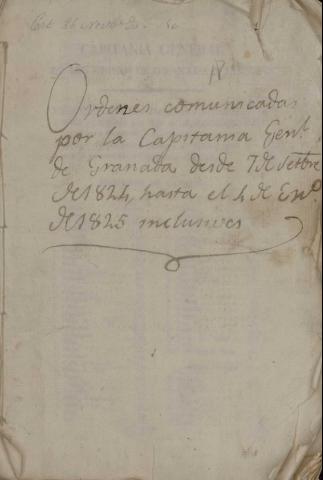 Ordenes comunicadas
por la Capitania Genl.
de Granada desde 7 de Setbre
de 1824, hasta el 4 de En.º
de 1825 inclusives